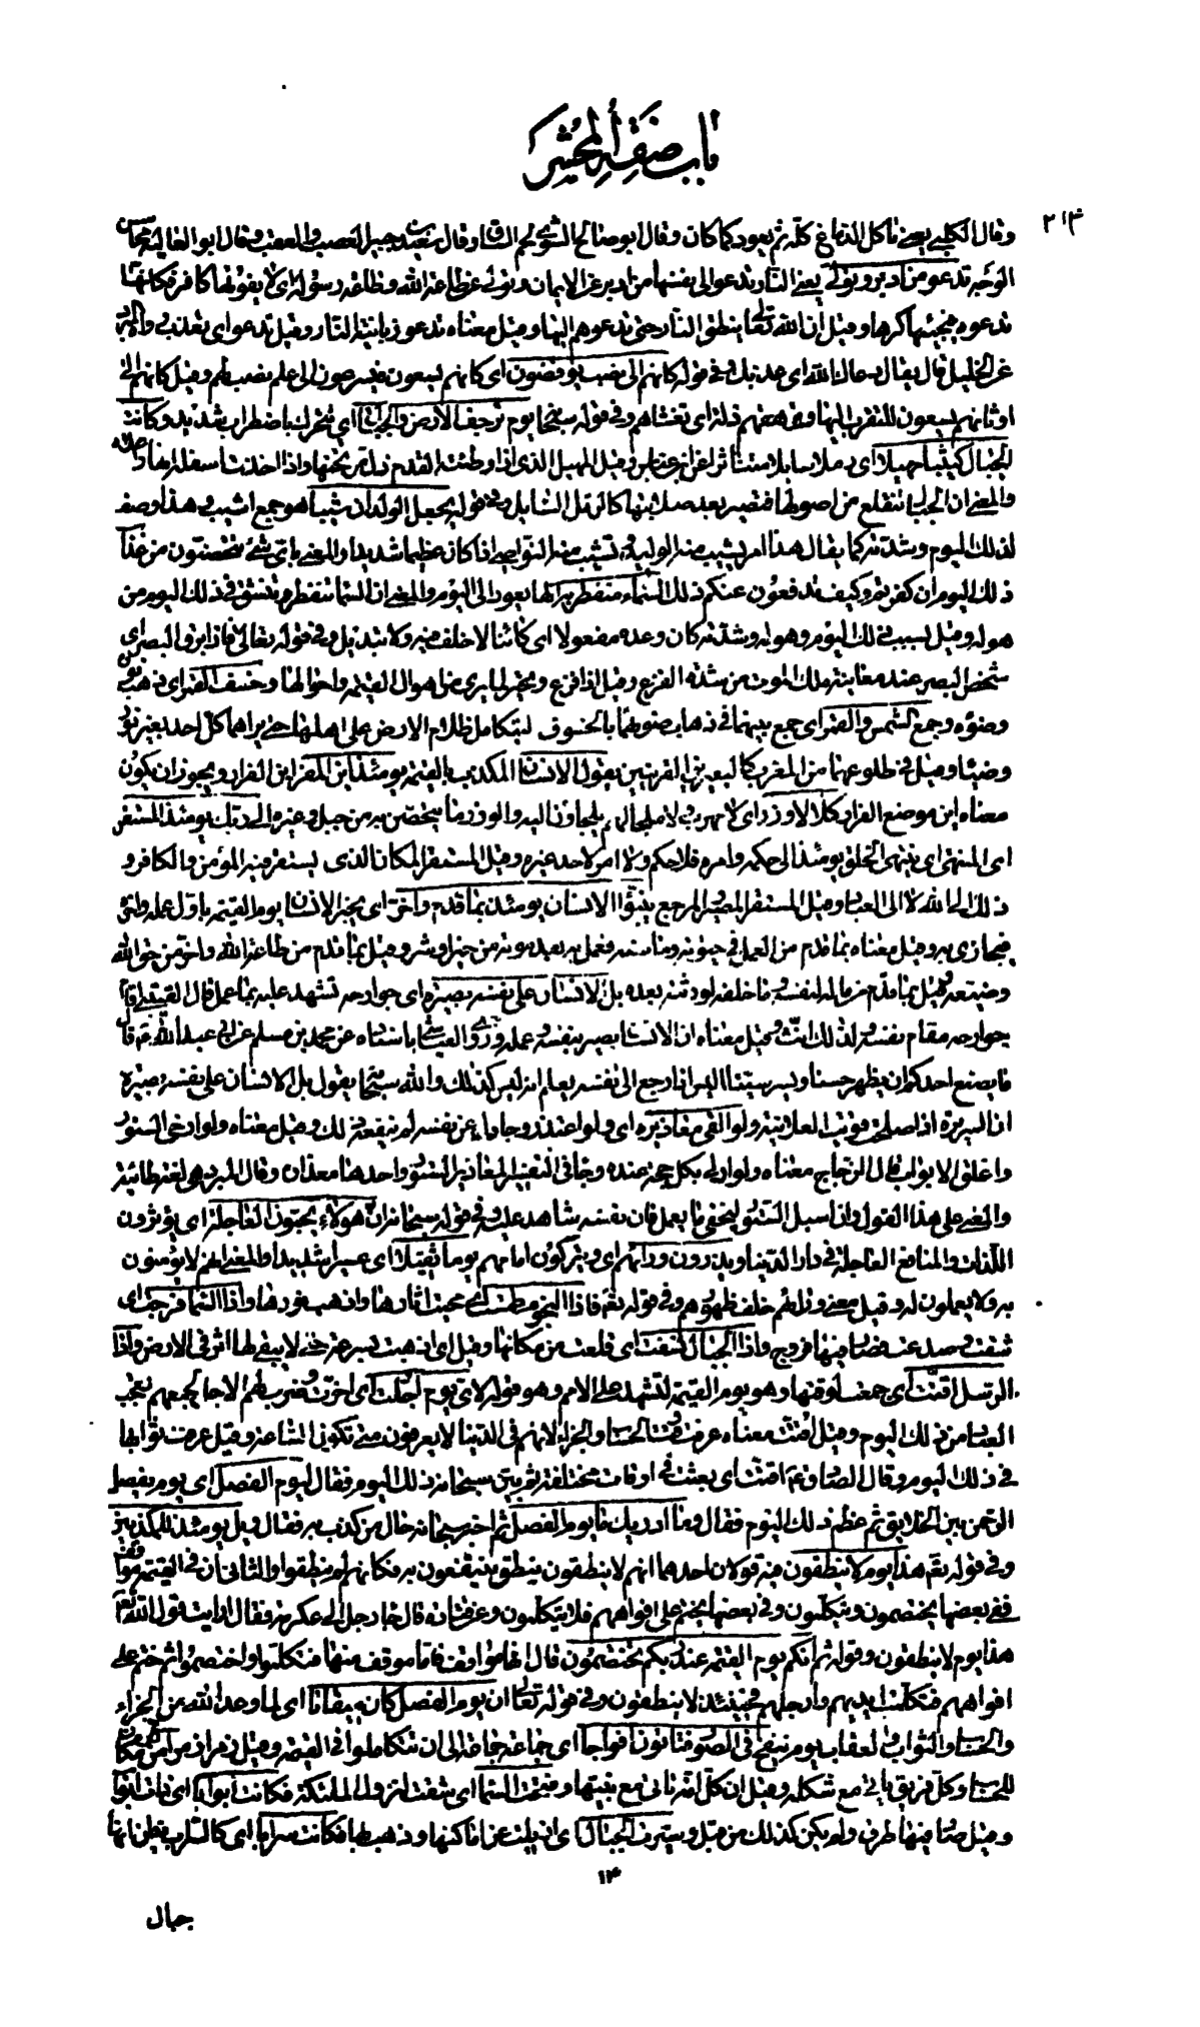 باب صفة المحشر
٢١٤
وقال الكلبي يعني تأكل الدماغ كله ثم يعود كما كان وقال ابو صالح الشوى لحم الساق وقال سعيد بن جبير العصب والعقب وقال ابو العالية محاسن
الوجه تدعو من ادبر وتولى يعني النار تدعو الى نفسها من ادبر عن الايمان وتولى عن طاعة الله وطاعة رسوله اي لا يفوتها كافر فكانها
تدعوه فيجيبها كرها وقيل ان الله تعالى ينطق النار حتى تدعوهم اليها وقيل معناه تدعو زبانية النار وقيل تدعو اي تعذب رواه المبرد
عن الخليل قال يقال دعاك الله اي عذبك وفي قوله كانهم الى نصب يوفضون اي كانهم يسعون فيسرعون الى علم نصب لهم وقيل كانهم الى
اوثانهم يسعون للتقرب اليها وترهقهم ذلة اي تغشاهم وفي قوله سبحانه يوم ترجف الارض والجبال اي تتحرك باضطراب شديد وكانت
الجبال كثيبا مهيلا اي رملا سائلا متناثرا عن ابن عباس وقيل المهيل الذي اذا وطئته القدم زل من تحتها واذا اخذت اسفله انهار اعلاه
والمعنى ان الجبال تنقلع من اصولها فتصير بعد صلابتها كالرمل السائل وفي قوله يجعل الولدان شيبا هو جمع اشيب وهذا وصف
لذلك اليوم وشدته كما يقال هذا امر يشيب منه الوليد وتشيب منه النواصي اذا كان عظيما شديدا والمعنى باي شيء تتحصنون من عذاب
ذلك اليوم ان كفرتم وكيف تدفعون عنكم ذلك السماء منفطر به الهاء يعود الى اليوم والمعنى ان السماء تنفطر وتنشق في ذلك اليوم من
هوله وقيل بسبب ذلك اليوم وهوله وشدته كان وعده مفعولا اي كائنا لا خلف فيه ولا تبديل وفي قوله تعالى فاذا برق البصر اي
شخص البصر عند معاينة ملك الموت من شدة الفزع وقيل اذا فزع وتحير لما يرى من اهوال القيمة واحوالها وخسف القمر اي ذهب نوره
وضوؤه وجمع الشمس والقمر اي جمع بينهما في ذهاب ضوئهما بالخسوف ليتكامل ظلام الارض على اهلها حتى يراهما كل احد بغير نور
وضياء وقيل في طلوعهما من المغرب كالبعيرين القرينين يقول الانسان المكذب بالقيمة يومئذ اين المفر اين الفرار ويجوز ان يكون
معناه اين موضع الفرار كلا لا وزر اي لا مهرب ولا ملجأ لهم يلجأون اليه والوزر ما يتحصن به من جبل وغيره الى ربك يومئذ المستقر
اي المنتهى اي ينتهي الخلق يومئذ الى حكمه وامره فلا حكم ولا امر لاحد غيره وقيل المستقر المكان الذي يستقر فيه المؤمن والكافر و
ذلك الى الله لا الى العباد وقيل المستقر المصير المرجع ينبؤا الانسان يومئذ بما قدم واخر اي يخبر الانسان يوم القيمة باول عمله واخره
فيجازى به وقيل معناه بما قدم من العمل في حيوته وما سنه فعمل به بعد موته من خير او شر وقيل بما قدم من طاعة الله واخر من حق الله
وضيعه وقيل بما قدم من ماله لنفسه وما خلفه لورثته بعده بل الانسان على نفسه بصيرة اي جوارحه تشهد عليه بما عمل قال القتيبي اقام
جوارحه مقام نفسه ولذلك انث وقيل معناه ان الانسان بصير بنفسه وعمله وروى العياشي باسناده عن محمد بن مسلم عن ابي عبد الله ع قال
ما يصنع احدكم ان يظهر حسنا ويسر سيئا اليس اذا رجع الى نفسه يعلم انه ليس كذلك والله سبحانه يقول بل الانسان على نفسه بصيرة
ان السريرة اذا صلحت قويت العلانية ولو القى معاذيره اي ولو اعتذر وجادل عن نفسه لم ينفعه ذلك وقيل معناه ولو ارخى الستور
واغلق الابواب قال الزجاج معناه ولو ادلى بكل حجة عنده وجاء في التفسير المعاذير الستور واحدها معذار وقال المبرد هي لغة طائية
والمعنى على هذا القول وان اسبل الستور ليخفي ما يعمل فان نفسه شاهدة عليه وفي قوله سبحانه ان هؤلاء يحبون العاجلة اي يؤثرون
اللذات والمنافع العاجلة في دار الدنيا ويذرون ورائهم اي ويتركون امامهم يوما ثقيلا اي عسيرا شديدا والمعنى انهم لا يؤمنون
به ولا يعملون له وقيل معنى ورائهم خلف ظهورهم وفي قوله تعالى فاذا النجوم طمست اي محيت اثارها واذهب نورها واذا السماء فرجت اي
شقت وصدعت فصار فيها فروج واذا الجبال نسفت اي قلعت من مكانها وقيل اي اذهبت بسرعة حتى لا يبقى لها اثر في الارض واذا
الرسل اقتت اي جمعت لوقتها وهو يوم القيمة لتشهد على الامم وهو قوله لاي يوم اجلت اي اخرت وضرب لهم الاجل لجمعهم تعجب
العباد من ذلك اليوم وقيل اقتت معناه عرفت وقت الحساب والجزاء لانهم في الدنيا لا يعرفون متى تكون الساعة وقيل عرفت ثوابها
في ذلك اليوم وقال الصادق ع اقتت اي بعثت في اوقات مختلفة ثم بين سبحانه ذلك اليوم فقال ليوم الفصل اي يوم يفصل
الرحمن بين الخلايق ثم عظم ذلك اليوم فقال وما ادريك ما يوم الفصل ثم اخبر سبحانه حال من كذب به فقال ويل يومئذ للمكذبين
وفي قوله تعالى هذا يوم لا ينطقون فيه قولان احدهما انهم لا ينطقون بنطق ينتفعون به فكانهم لم ينطقوا والثاني ان في القيمة مواقف
ففي بعضها يختصمون ويتكلمون وفي بعضها يختم على افواههم فلا يتكلمون وعن قتادة قال جاء رجل الى عكرمة فقال ارايت قول الله تعالى
هذا يوم لا ينطقون وقوله ثم انكم يوم القيمة عند ربكم تختصمون قال انها مواقف فاما موقف منها فتكلموا واختصموا ثم ختم على
افواههم فتكلمت ايديهم وارجلهم فحينئذ لا ينطقون وفي قوله تعالى ان يوم الفصل كان ميقاتا اي لما وعد الله من الجزاء
والحساب والثواب والعقاب يوم ينفخ في الصور فتأتون افواجا اي جماعة جماعة الى ان تتكاملوا في القيمة وقيل زمرا زمرا من كل مكان
للحساب وكل فريق يأتي مع شكله وقيل ان كل امة تأتي مع نبيها وفتحت السماء اي شقت لنزول الملائكة فكانت ابوابا اي ذات ابواب
وقيل صار فيها طرق ولم يكن كذلك من قبل وسيرت الجبال اي ازيلت عن اماكنها وذهب بها فكانت سرابا اي كالسراب يظن انها
١٤
جبال